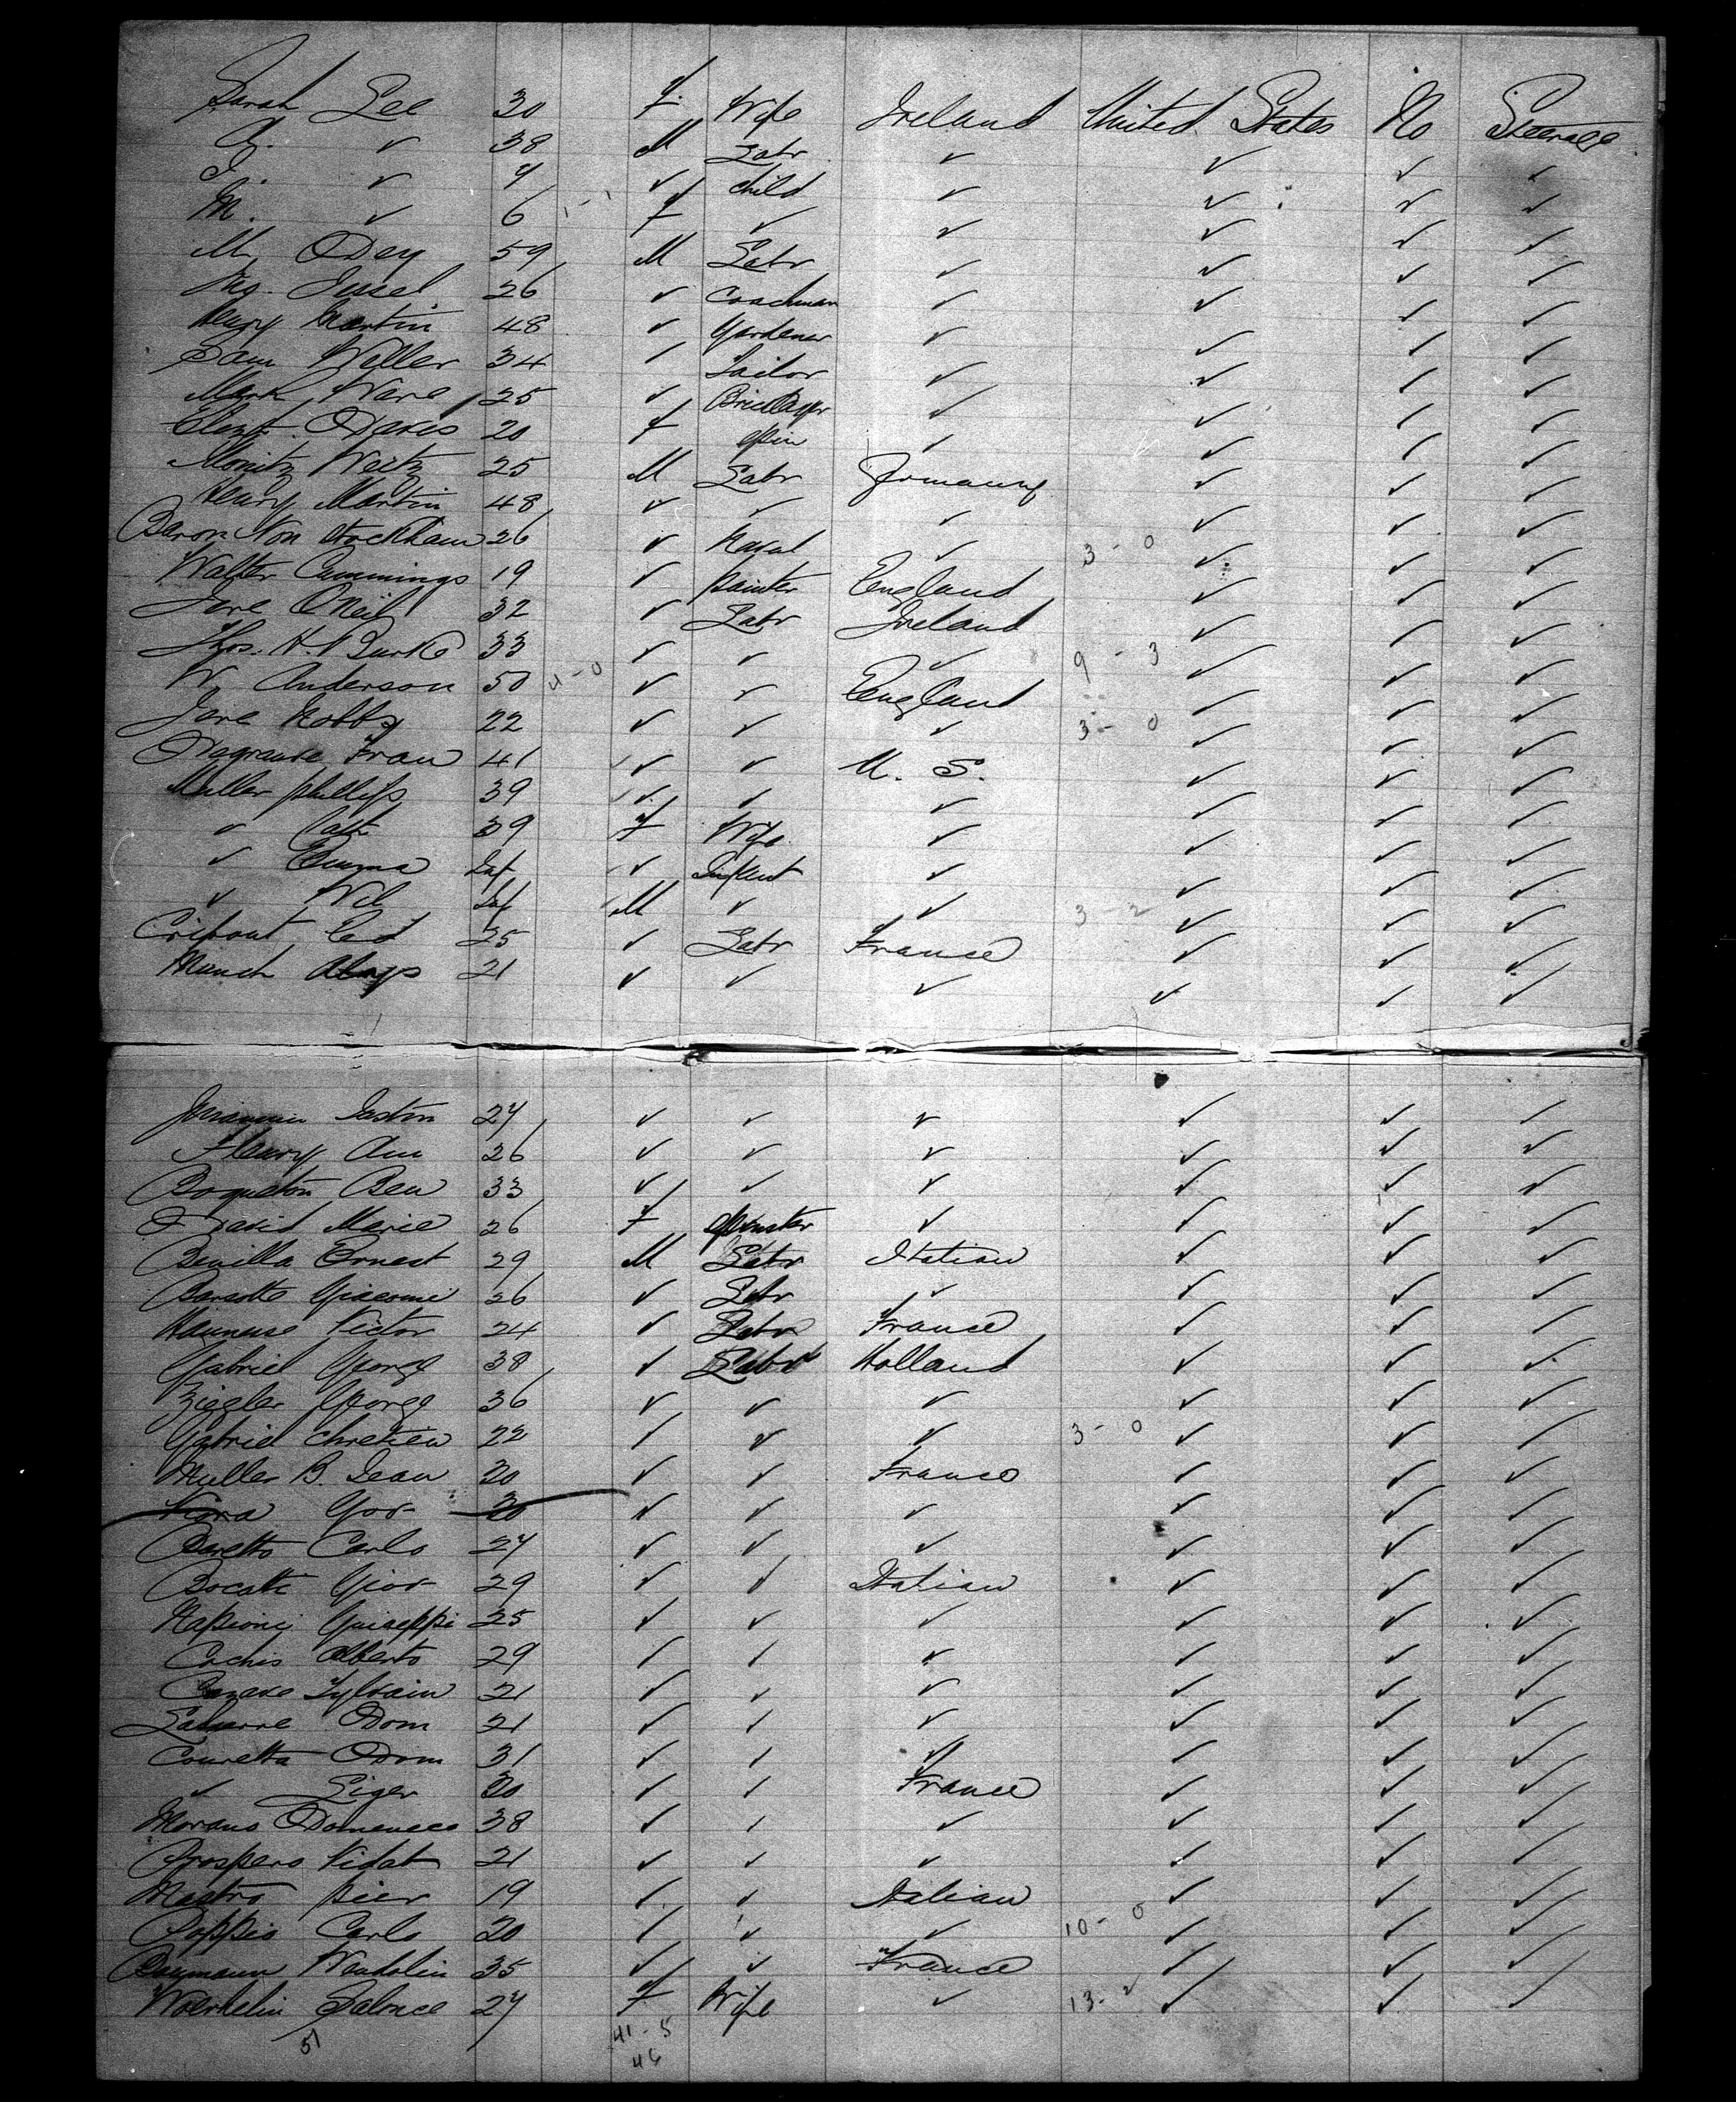 Sarah Lee 30 F Wife Ireland United States No Steerage
A. ✓ 38 M Labr ✓ ✓ ✓ ✓
✓ ✓ child ✓ ✓ ✓ ✓
M. ✓ 6 1-1 F ✓ ✓ ✓ ✓ ✓
M. ODey 59 M Labr ✓ ✓ ✓ ✓
26 ✓ Coachman ✓ ✓ ✓ ✓
Henry Martin 48 ✓ Gardener ✓ ✓ ✓ ✓
Sam Weller 34 ✓ Tailor ✓ ✓ ✓ ✓
Mark Ware 25 ✓ ✓ ✓ ✓ ✓
Davis 20 F Spin ✓ ✓ ✓ ✓
Moritz Weitz 25 M Labr Germany ✓ ✓ ✓
Henry Martin 48 ✓ ✓ ✓ ✓ ✓ ✓
Baron Von Stockham 26 ✓ Naval ✓ 3-0 ✓ ✓ ✓
Walter Cummings 19 ✓ painter England ✓ ✓ ✓
ONeil 32 ✓ Labr Ireland ✓ ✓ ✓
Thos. H. Burke 33 ✓ ✓ ✓ 9-3 ✓ ✓ ✓
W. Anderson 50 4-0 ✓ ✓ England ✓ ✓ ✓
22 ✓ ✓ ✓ 3-0 ✓ ✓ ✓
Fran 41 ✓ ✓ U. S. ✓ ✓ ✓
Muller phillip 39 ✓ ✓ ✓ ✓ ✓ ✓
✓ Cath 39 F Wife ✓ ✓ ✓ ✓
✓ Emma Inf ✓ Infant ✓ ✓ ✓ ✓
✓ Wil Inf M ✓ ✓ 3-2 ✓ ✓ ✓
Ed 25 ✓ Labr France ✓ ✓ ✓
Munch 21 ✓ ✓ ✓ ✓ ✓ ✓
Gaston 27 ✓ ✓ ✓ ✓ ✓ ✓
Fleury Ann 26 ✓ ✓ ✓ ✓ ✓ ✓
Boqueton Ben 33 ✓ ✓ ✓ ✓ ✓ ✓
David Marie 26 F Spinster ✓ ✓ ✓ ✓
Benilla Ernest 29 M Labr Italian ✓ ✓ ✓
Barsotte Giacomi 26 ✓ Labr ✓ ✓ ✓ ✓
Victor 24 ✓ Labr France ✓ ✓ ✓
Gabriel George 38 ✓ Labr Holland ✓ ✓ ✓
Ziegler George 36 ✓ ✓ ✓ ✓ ✓ ✓
Gabriel Chretien 22 ✓ ✓ ✓ 3-0 ✓ ✓ ✓
Muller B. Jean 30 ✓ ✓ France ✓ ✓ ✓
Giov 30 ✓ ✓ ✓ ✓ ✓ ✓
Baretto Carlo 27 ✓ ✓ ✓ ✓ ✓ ✓
Bocatti Giov 29 ✓ ✓ Italian ✓ ✓ ✓
Guiseppi 25 ✓ ✓ ✓ ✓ ✓ ✓
Cochis Alberto 29 ✓ ✓ ✓ ✓ ✓ ✓
Sylvain 21 ✓ ✓ ✓ ✓ ✓ ✓
Dom 21 ✓ ✓ ✓ ✓ ✓ ✓
Couretta Dom 31 ✓ ✓ ✓ ✓ ✓ ✓
✓ Liger 30 ✓ ✓ France ✓ ✓ ✓
Morano Domeneco 38 ✓ ✓ ✓ ✓ ✓ ✓
Prospero Vidal 21 ✓ ✓ ✓ ✓ ✓ ✓
Mastro pier 19 ✓ ✓ Italian ✓ ✓ ✓
Poppio Carlo 20 ✓ ✓ ✓ 10-0 ✓ ✓ ✓
Baumann Wendolin 35 ✓ ✓ France ✓ ✓ ✓
Woerhelin Salonce 27 F Wife ✓ 13-2 ✓ ✓ ✓
51 41-5
46